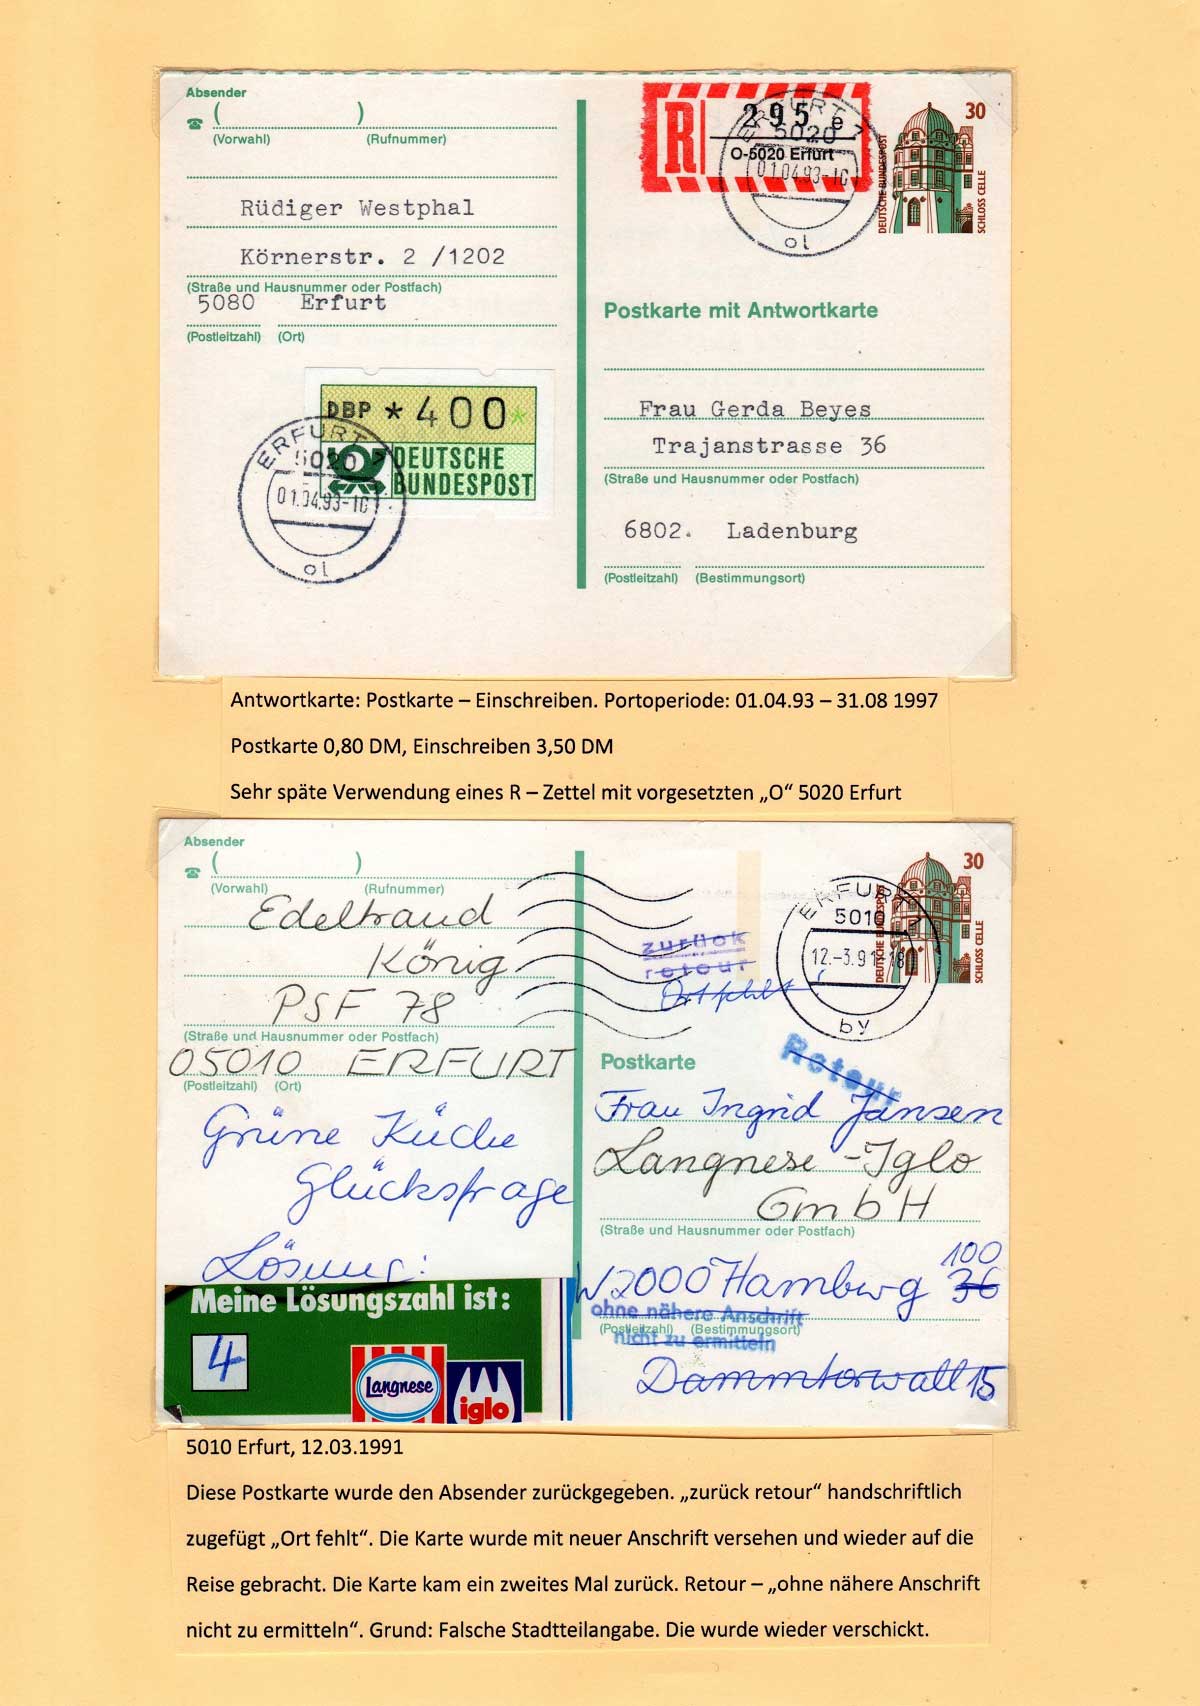 Absender
( )
(Vorwahl) (Rufnummer)
Rüdiger Westphal
Körnerstr. 2 /1202
(Straße und Hausnummer oder Postfach)
5080 Erfurt
(Postleitzahl) (Ort)
DBP *400*
DEUTSCHE
BUNDESPOST
ERFURT 7
5020
01.04.93-10
ol
R
295 e
O-5020 Erfurt
ERFURT 7
5020
01.04.93-10
ol
30
DEUTSCHE BUNDESPOST
SCHLOSS CELLE
Postkarte mit Antwortkarte
Frau Gerda Beyes
Trajanstrasse 36
(Straße und Hausnummer oder Postfach)
6802. Ladenburg
(Postleitzahl) (Bestimmungsort)
Antwortkarte: Postkarte – Einschreiben. Portoperiode: 01.04.93 – 31.08 1997
Postkarte 0,80 DM, Einschreiben 3,50 DM
Sehr späte Verwendung eines R – Zettel mit vorgesetzten „O“ 5020 Erfurt
Absender
( )
(Vorwahl) (Rufnummer)
Edeltraud
König
PSF 78
(Straße und Hausnummer oder Postfach)
05010 ERFURT
(Postleitzahl) (Ort)
Grüne Küche
Glücksfrage
Lösung:
Meine Lösungszahl ist:
4
Langnese
iglo
zurück
retour
Ort fehlt!
ERFURT
5010
12.-3.91-18
by
30
DEUTSCHE BUNDESPOST
SCHLOSS CELLE
Retour
Postkarte
Frau Ingrid Jansen
Langnese-Iglo
GmbH
(Straße und Hausnummer oder Postfach)
100
W 2000 Hamburg 36
ohne nähere Anschrift
(Postleitzahl) (Bestimmungsort)
nicht zu ermitteln
Dammtorwall 15
5010 Erfurt, 12.03.1991
Diese Postkarte wurde den Absender zurückgegeben. „zurück retour“ handschriftlich
zugefügt „Ort fehlt“. Die Karte wurde mit neuer Anschrift versehen und wieder auf die
Reise gebracht. Die Karte kam ein zweites Mal zurück. Retour – „ohne nähere Anschrift
nicht zu ermitteln“. Grund: Falsche Stadtteilangabe. Die wurde wieder verschickt.